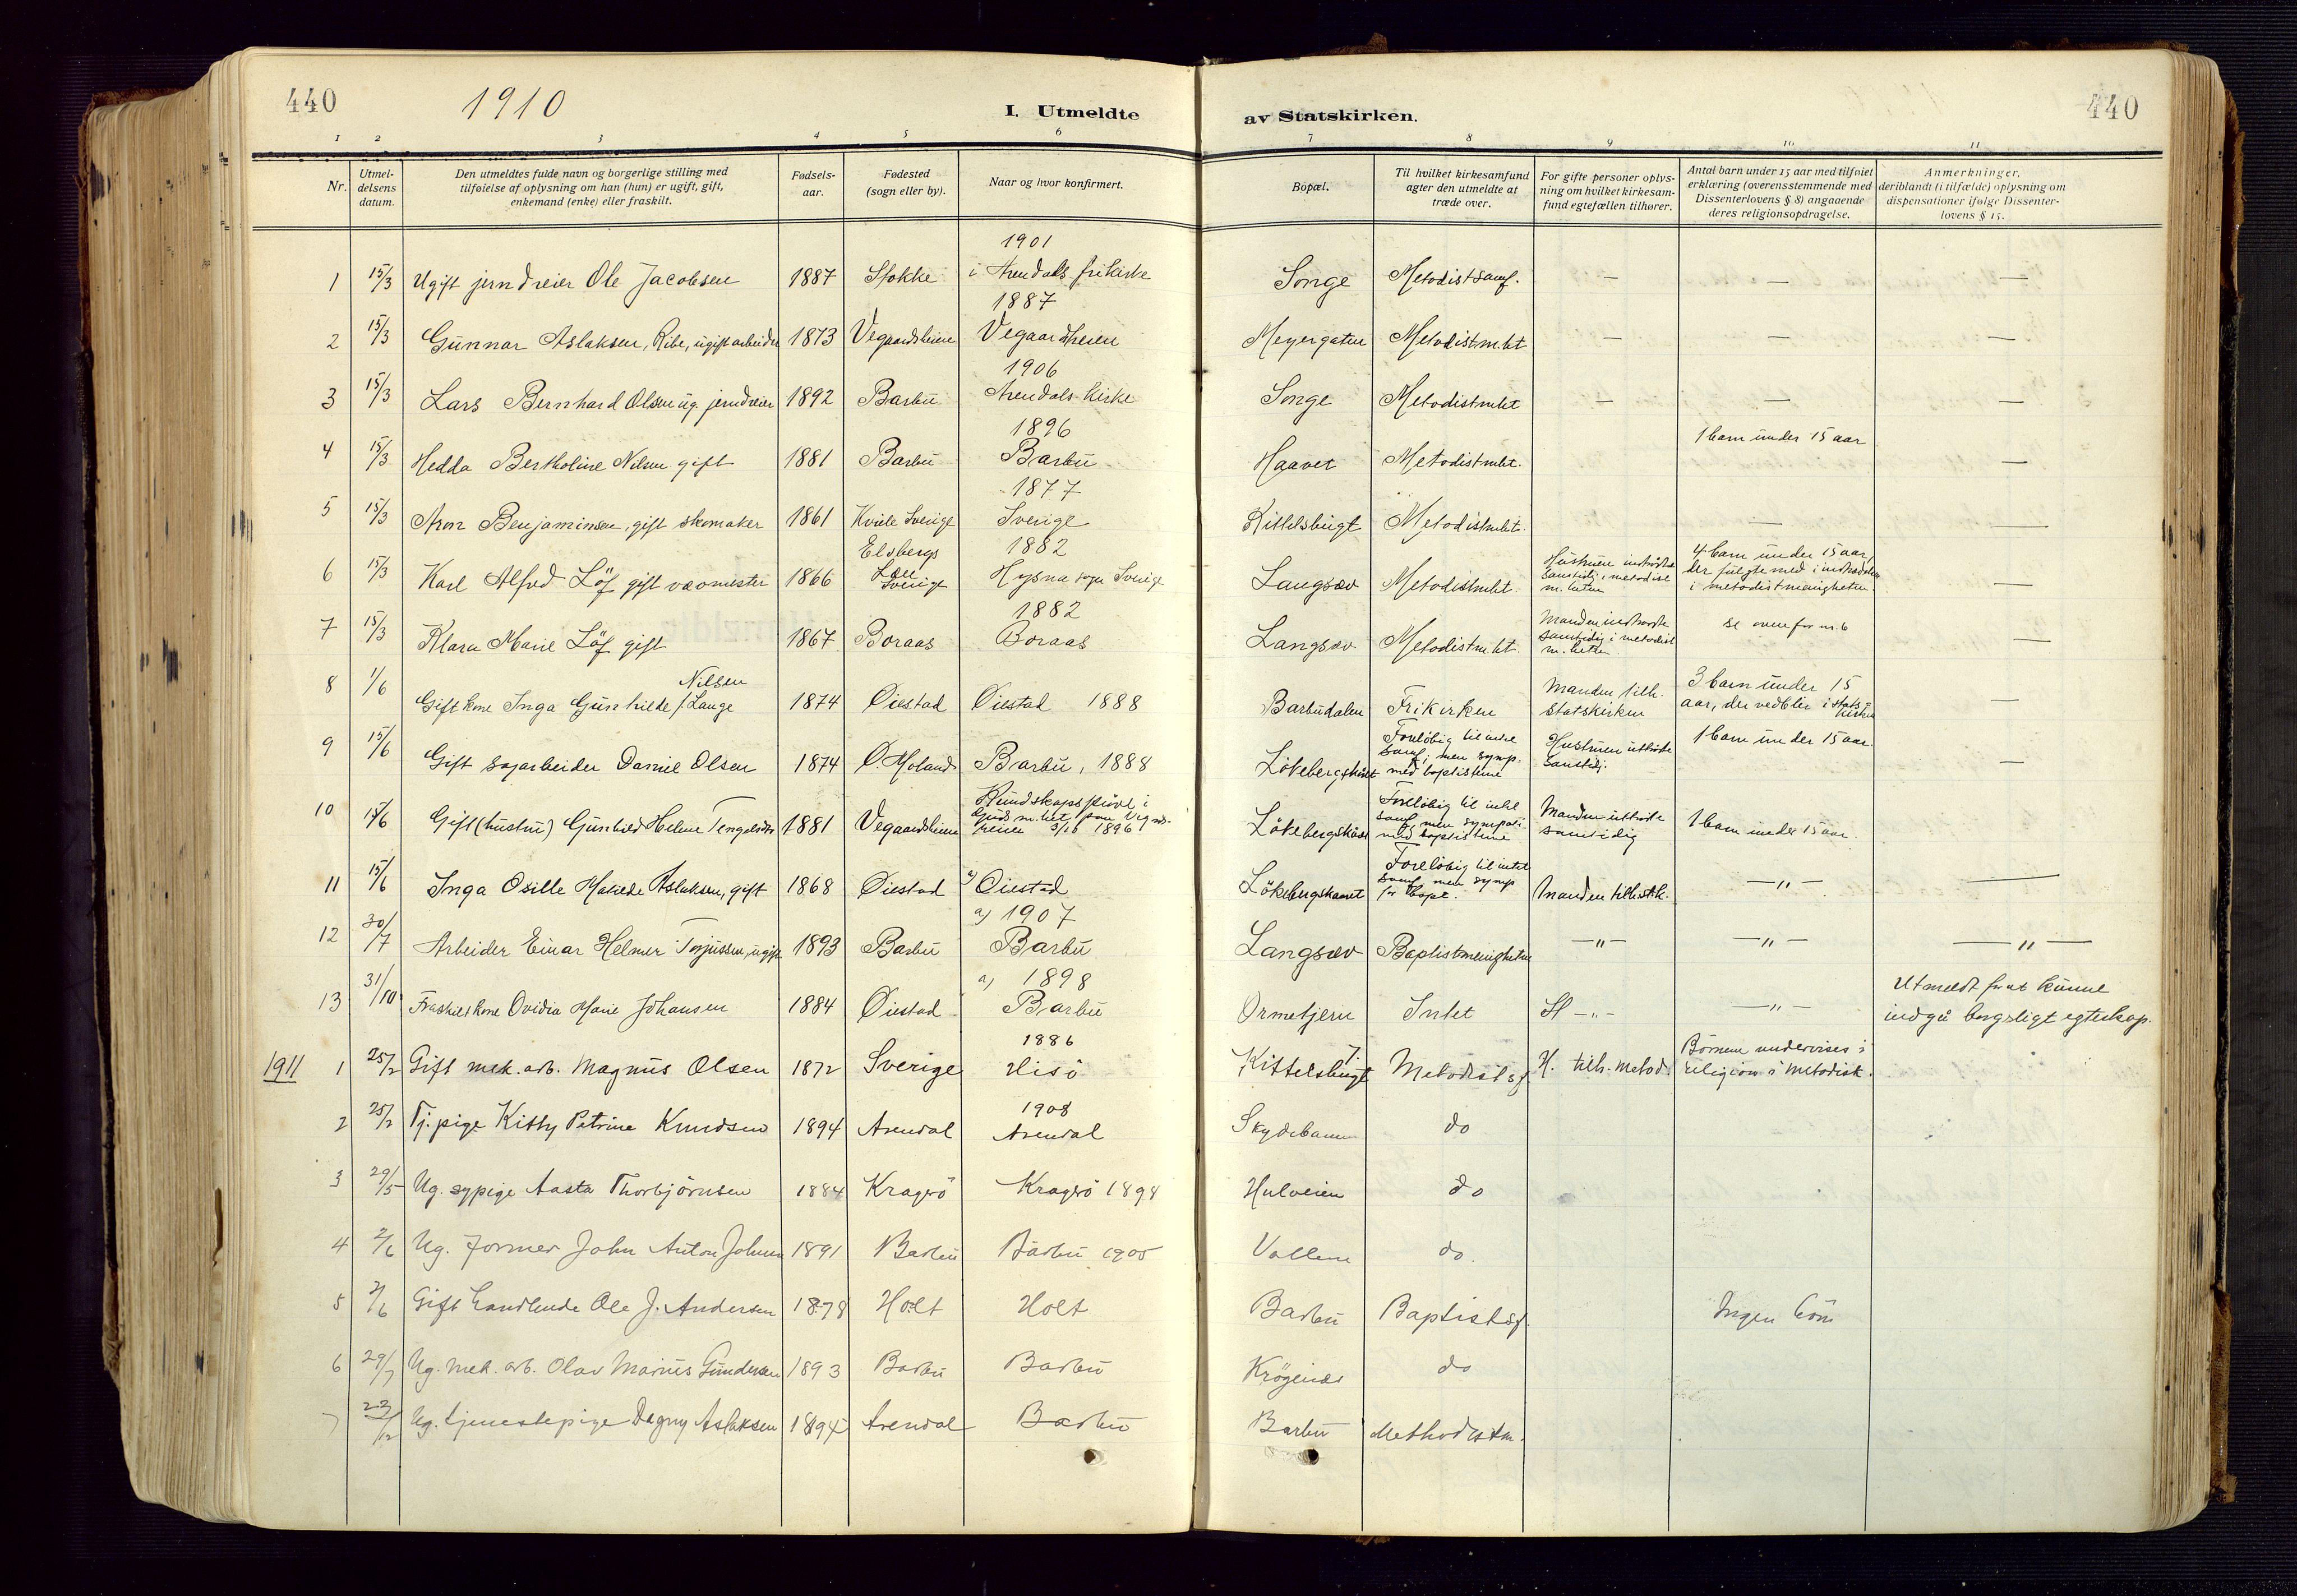 440
1910
I. Utmeldte
av Statskirken.
440
1 2 3 4 5 6 7 8 9 10 11
Nr.
Utmeldelsens datum.
Den utmeldtes fulde navn og borgerlige stilling med tilføielse af oplysning om han (hun) er ugift, gift, enkemand (enke) eller fraskilt.
Fødselsaar.
Fødested (sogn eller by).
Naar og hvor konfirmert.
Bopæl.
Til hvilket kirkesamfund agter den utmeldte at træde over.
For gifte personer oplysning om hvilket kirkesamfund egtefællen tilhører.
Antal barn under 15 aar med tilføiet erklæring (overensstemmende med Dissenterlovens § 8) angaaende deres religionsopdragelse.
Anmerkninger, deriblandt (i tilfælde) oplysning om dispensationer ifølge Dissenterlovens § 15.
1 15/3 Ugift jerndreier Ole Jacobsen 1887 Stokke 1901 i Arendals frikirke Songe Metodistsamf. — — —
2 15/3 Gunnar Aslaksen, Ribe, ugift arbeider 1873 Vegaardsheien 1887 Vegaardsheien Meyergaten Metodistm.het — — —
3 15/3 Lars Bernhard Olsen ug. jerndreier 1892 Barbu 1906 Arendals kirke Songe Metodistmht — — —
4 15/3 Hedda Bertholine Nilsen gift 1881 Barbu 1896 Barbu Haavet Metodistmht. 1 barn under 15 aar —
5 15/3 Aron Benjaminsen, gift skomaker 1861 Sverige 1877 Sverige Kittelsbugt Metodistmht. — —
6 15/3 Karl Alfred Löf gift 1866 Elsborgs Län Sverige 1882 Hysna sogn Sverige Langsæv Metodistmht. Hustruen indtrådte samtidig i metodist m.heten 4 barn under 15 aar, der fulgte med i indtrædelsen i metodistmenigheten. —
7 15/3 Klara Marie Löf gift 1867 Boraas 1882 Boraas Langsæv Metodistm.ht. Manden indtraadte samtidig i metodist m.heten se ovenfor nr. 6 —
8 1/6 Gift kone Inga Gunhilde Nilsen / Lange 1874 Øiestad Øiestad 1888 Barbudalen Frikirken Manden tilh. statskirken 3 barn under 15 aar, der vedblir i statskirken —
9 15/6 Gift sagarbeider Daniel Olsen 1874 Ø. Moland Barbu, 1888 Foreløbig til intet samf., men symp. med baptisterne Hustruen uttrådte samtidig. 1 barn under 15 aar. —
10 15/6 Gift (hustru) Gunhild Helene 1881 Vegaardsheien Kundskapsprøve i 1896 Foreløbig til intet samf, men sympati med baptisterne Manden uttrådte samtidig 1 barn under 15 aar.
11 15/6 Inga Osille Aslaksen, gift 1868 Øiestad Øiestad Foreløbig til intet samf, men symp for bapt. Manden tilh. stk. —"— —
12 30/7 Arbeider Einar Helmer Torjussen, ugift 1893 Barbu a) 1907 Barbu Langsæv Baptistmenigheten —"— —"— —"—
13 31/10 Fraskilt kone Ovidia Marie Johansen 1884 Øiestad a) 1898 Barbu Ormetjern Intet St —"— —"— Utmeldt for at kunne indgå borgerligt egteskap.
1911 1 25/2 Gift mek. arb. Magnus Olsen 1872 Sverige 1886 Hisö Kittelsbugt Metodistsf H. tilh. metod. Børnene undervises i religion i metodisk.
2 25/2 Tj.pige Kitty Petrine Knudsen 1894 Arendal 1908 Arendal Skydebanen do
3 29/5 Ug. sypige Aasta Thorbjörnsen 1884 Kragerö Kragerö 1898 Hulveien do
4 2/6 Ug. former John Anton Johnsen 1891 Barbu Barbu 1905 Vollene do.
5 2/6 Gift handlende Ole J. Andersen 1878 Holt Holt Barbu Baptistsf. Ingen börn
6 29/7 Ug. mek. arb. Olav Marius Gundersen 1893 Barbu Barbu Krögenes do
7 23/12 Ug. tjenestepige Dagny Aslaksen 1894 Arendal Barbu Barbu Methodistm.